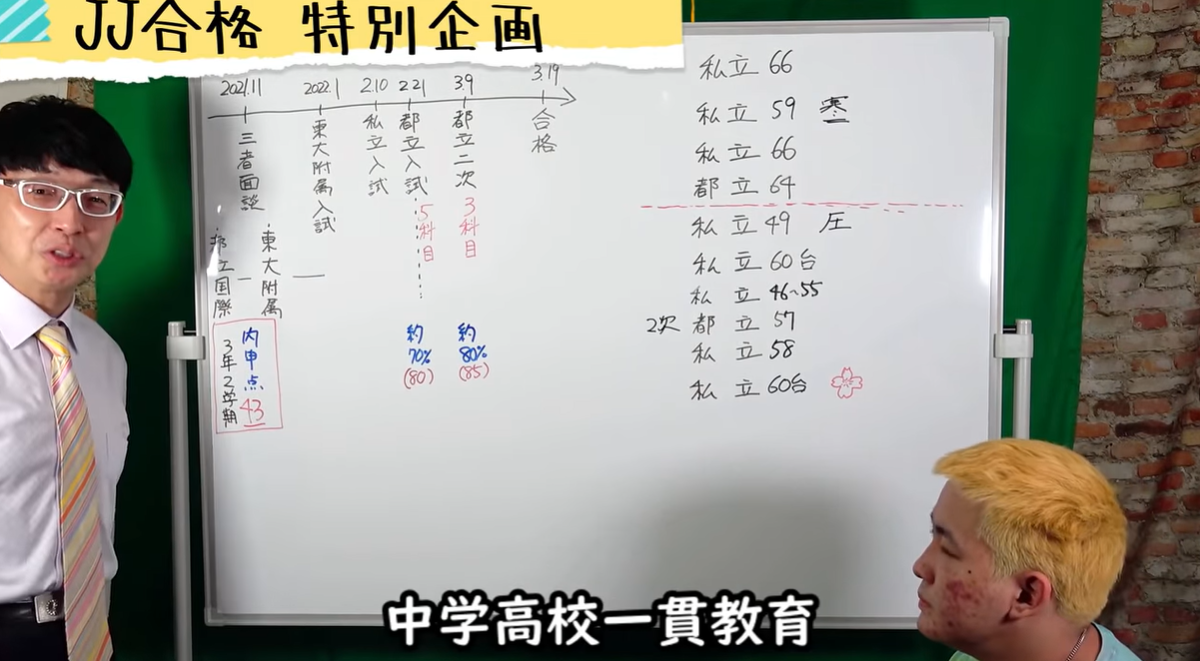 JJ合格 特別企画
2021.11
2022.1
2.10
2.21
3.9
3.19
三者面談
東大附属入試
私立入試
都立入試
都立二次
合格
5科目
3科目
都立国際
東大附属
3年2学期
内申点
43
約
70%
(80)
約
80%
(85)
私立 66
私立 59 寒
私立 66
都立 64
私立 49 圧
私立 60台
私立 46~55
2次 都立 57
私立 58
私立 60台
中学高校一貫教育